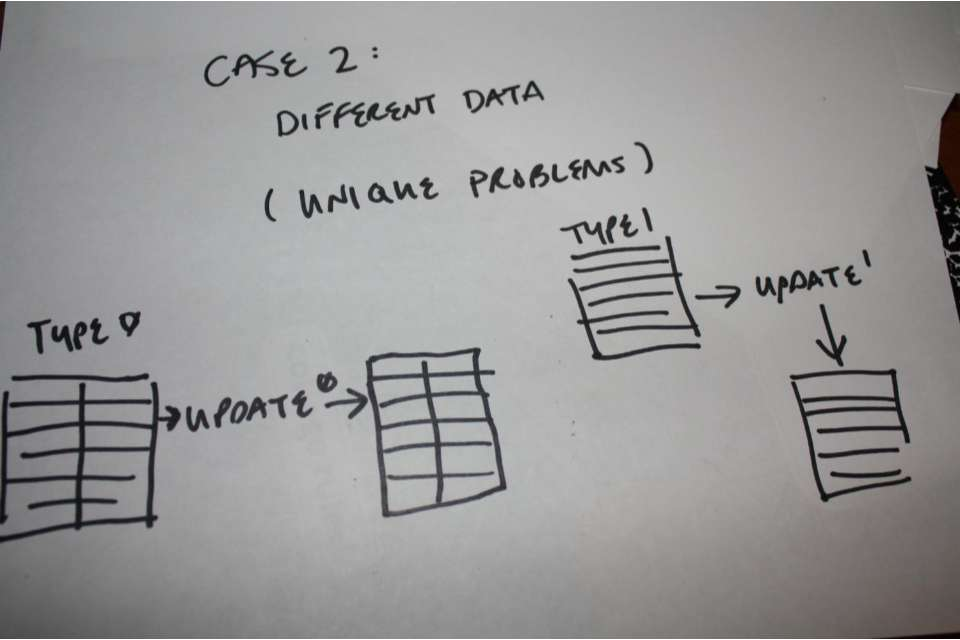 CASE 2:
DIFFERENT DATA
(UNIQUE PROBLEMS)
TYPE 1
UPDATE¹
TYPE 0
UPDATE⁰